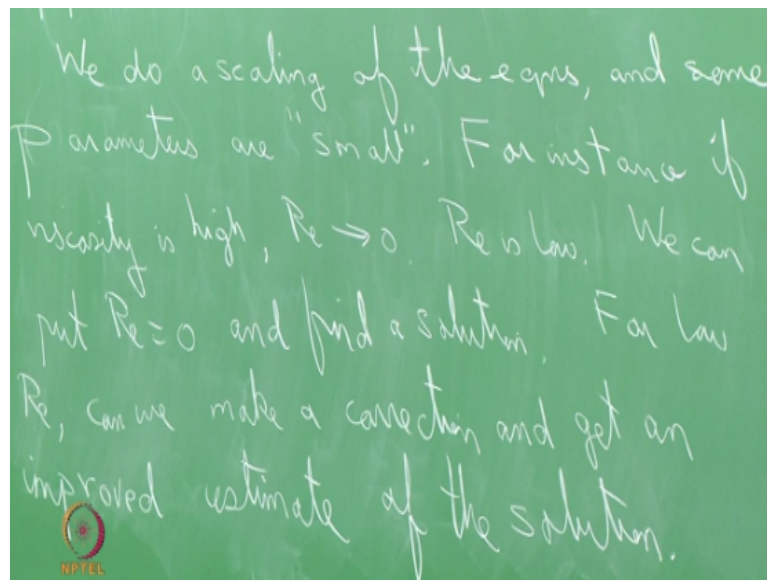 We do a scaling of the eqns, and some
parameters are "small". For instance if
viscosity is high, Re → 0. Re is low. We can
put Re = 0 and find a solution. For low
Re, can we make a correction and get an
improved estimate of the solution.
NPTEL